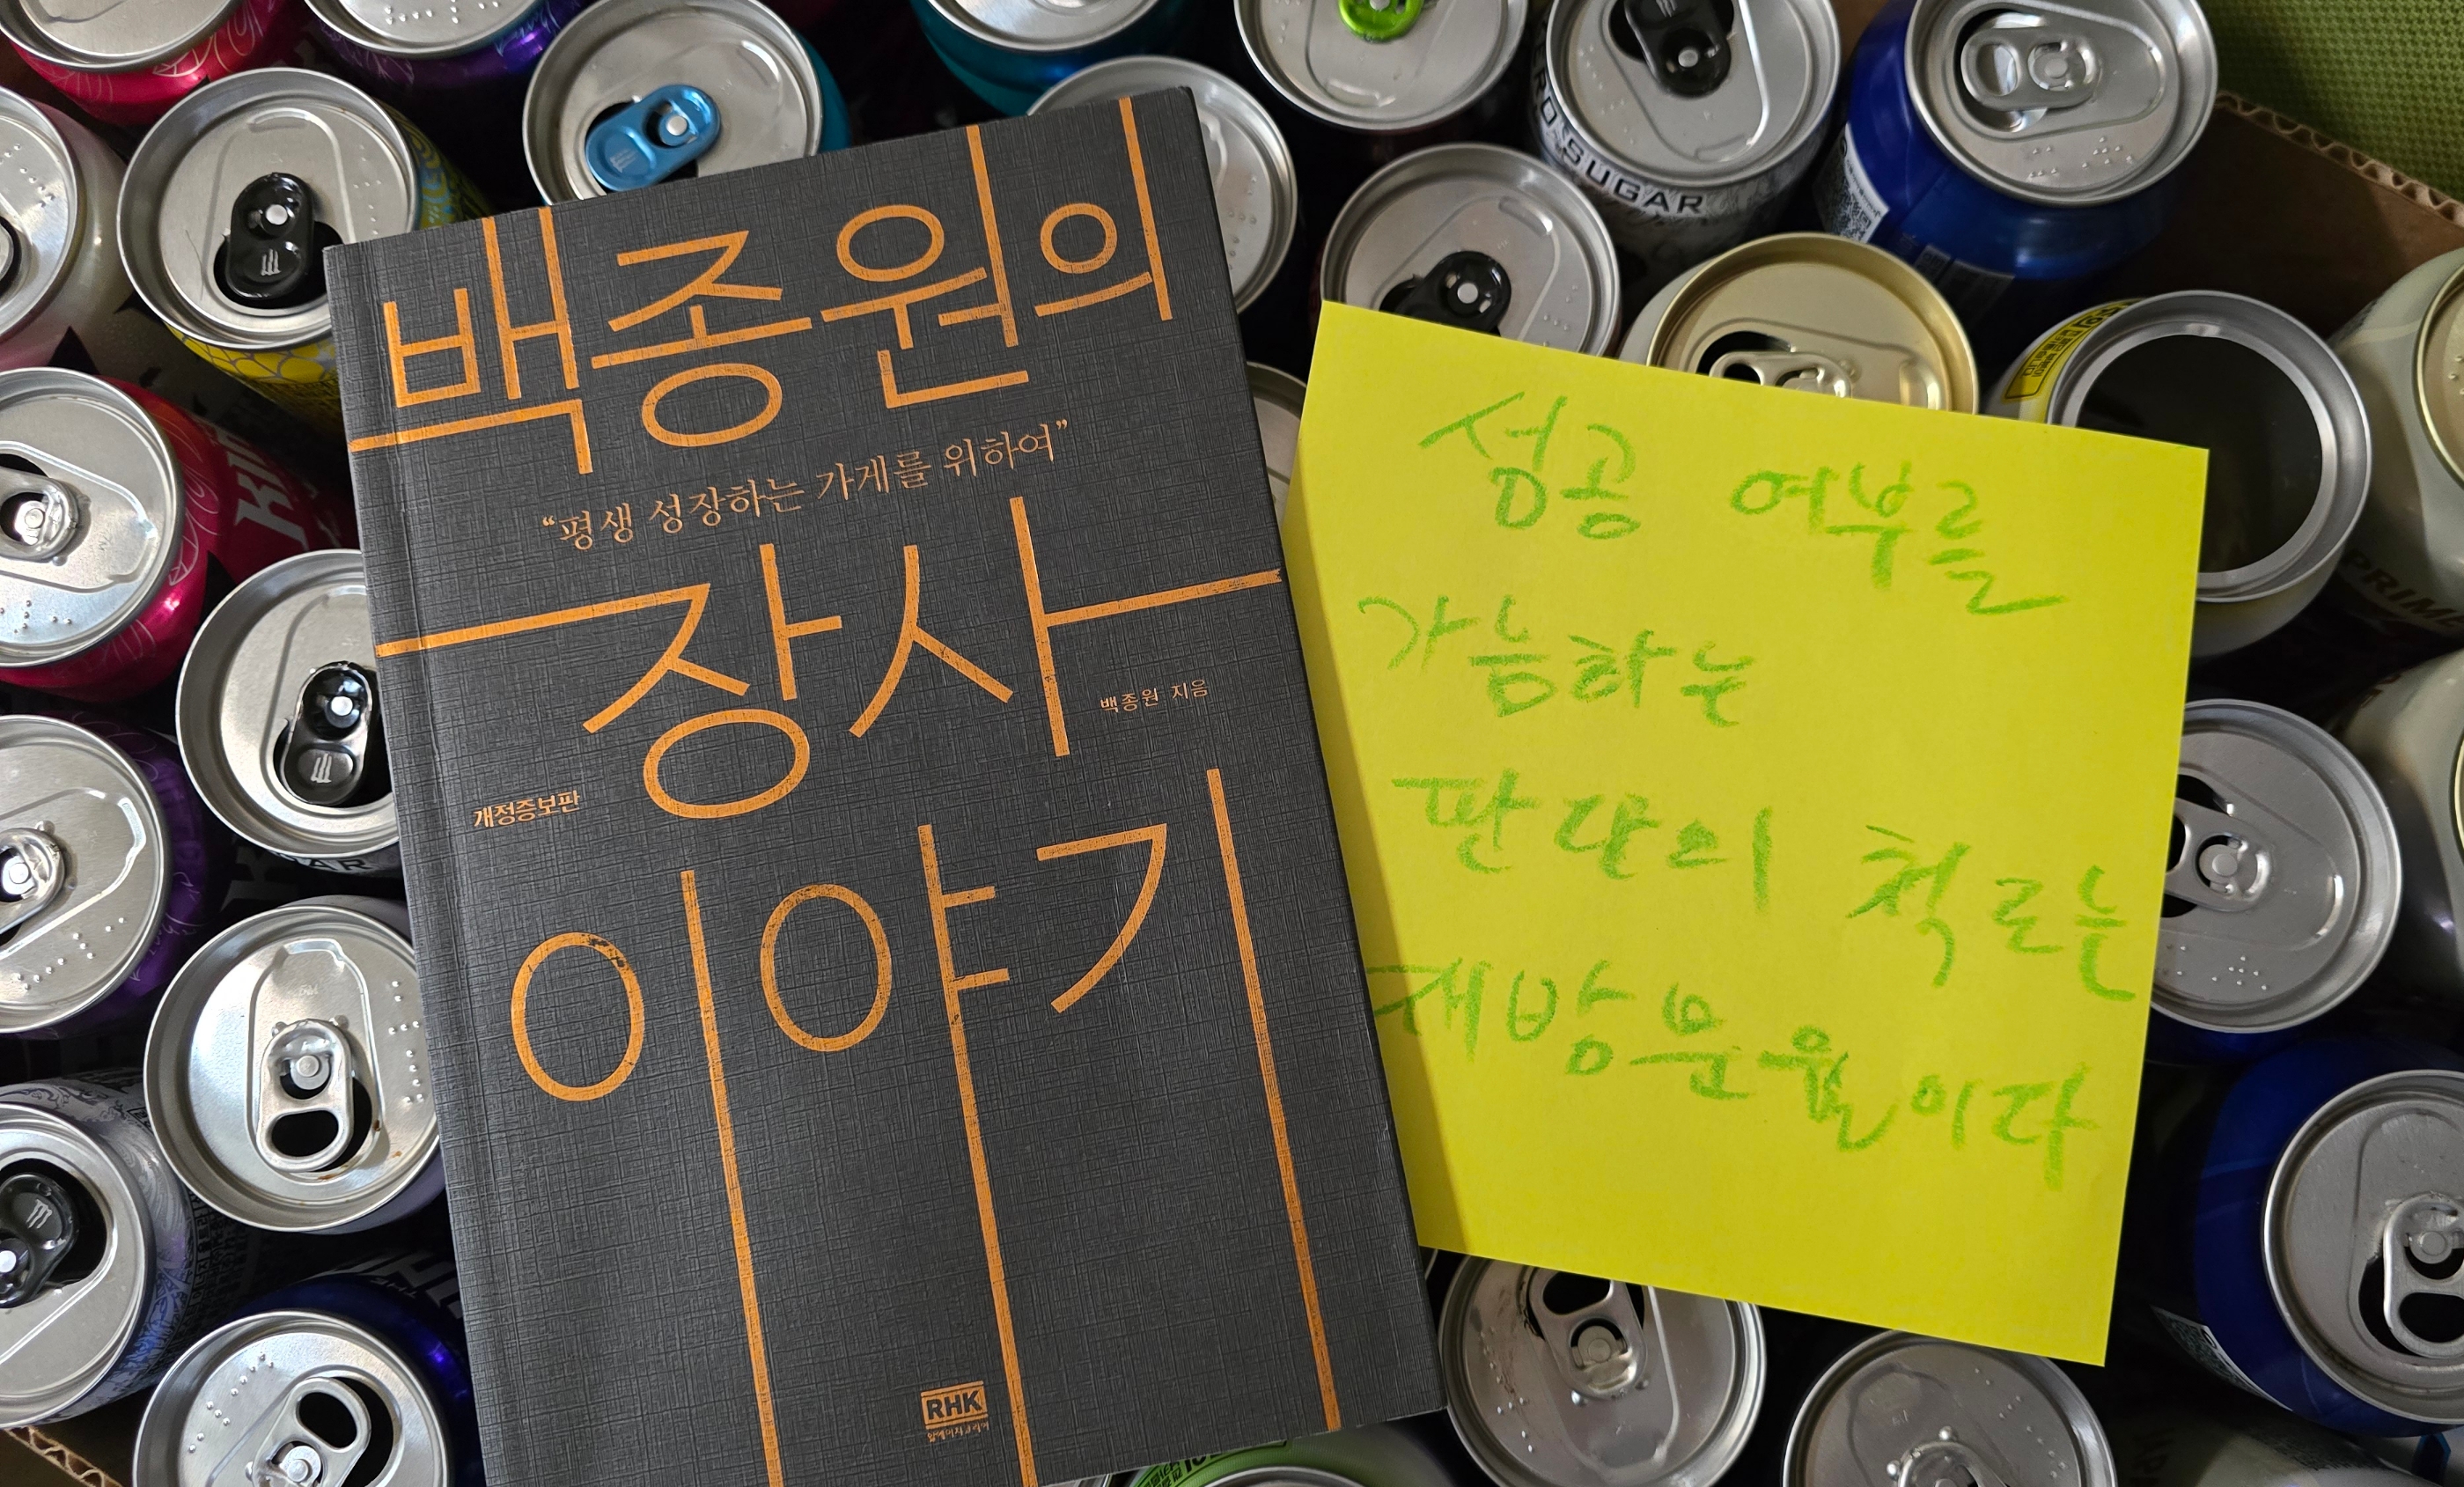 백종원의
“평생 성장하는 가게를 위하여”
장사
백종원 지음
개정증보판
이야기
RHK
알에이치코리아
성공 여부를
가늠하는
판단의 척도는
재방문율이다
ZERO SUGAR
PRIME